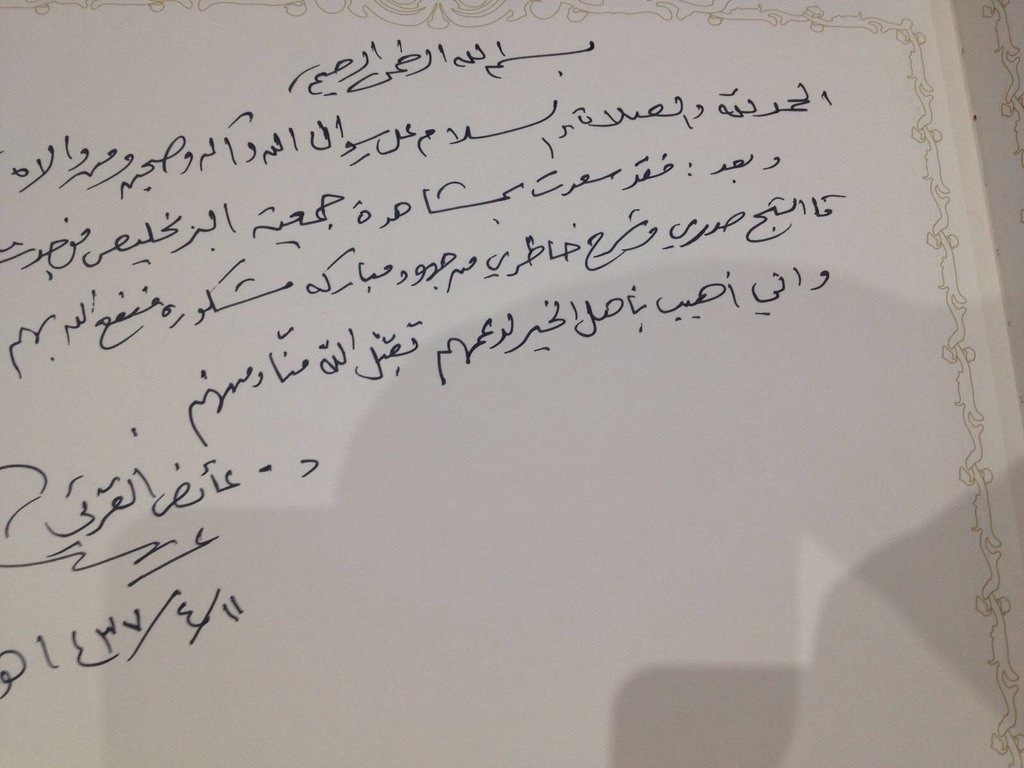 بسم الله الرحمن الرحيم
الحمد لله والصلاة والسلام على رسول الله وآله وصحبه ومن والاه
وبعد : فقد سعدت بمشاهدة جمعية البر بخليص فوجدت
ما اثلج صدري وشرح خاطري من جهود مباركه مشكوره فنفع الله بهم
واني أهيب بأهل الخير لدعمهم تقبّل الله منّا ومنهم
د. عائض القرني
١٤٣٧/٤/١١هـ